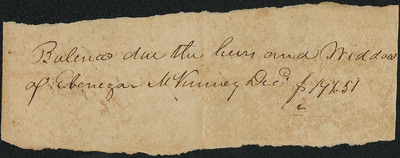 Balence due the heirs and Widdow
of Ebenezar McKinney Decd $